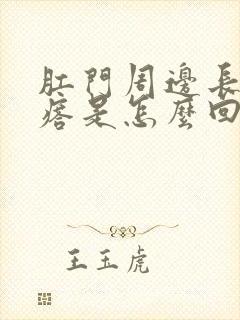 肛門周邊長
痞是怎麼回
王玉虎